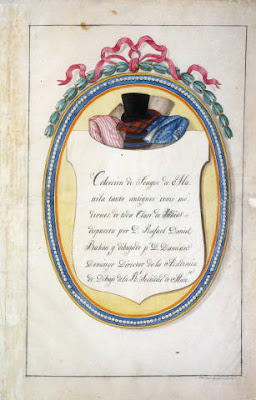 Coleccion de Trages de Ma
nila tanto antiguos como mo
dernos, de toda Clase de
dispuesta por D. Rafael Daniel
Baboom y dibujados pr. D. Damian
Domingo Director de la Academia
de Dibujo de la Rl. Sociedad de